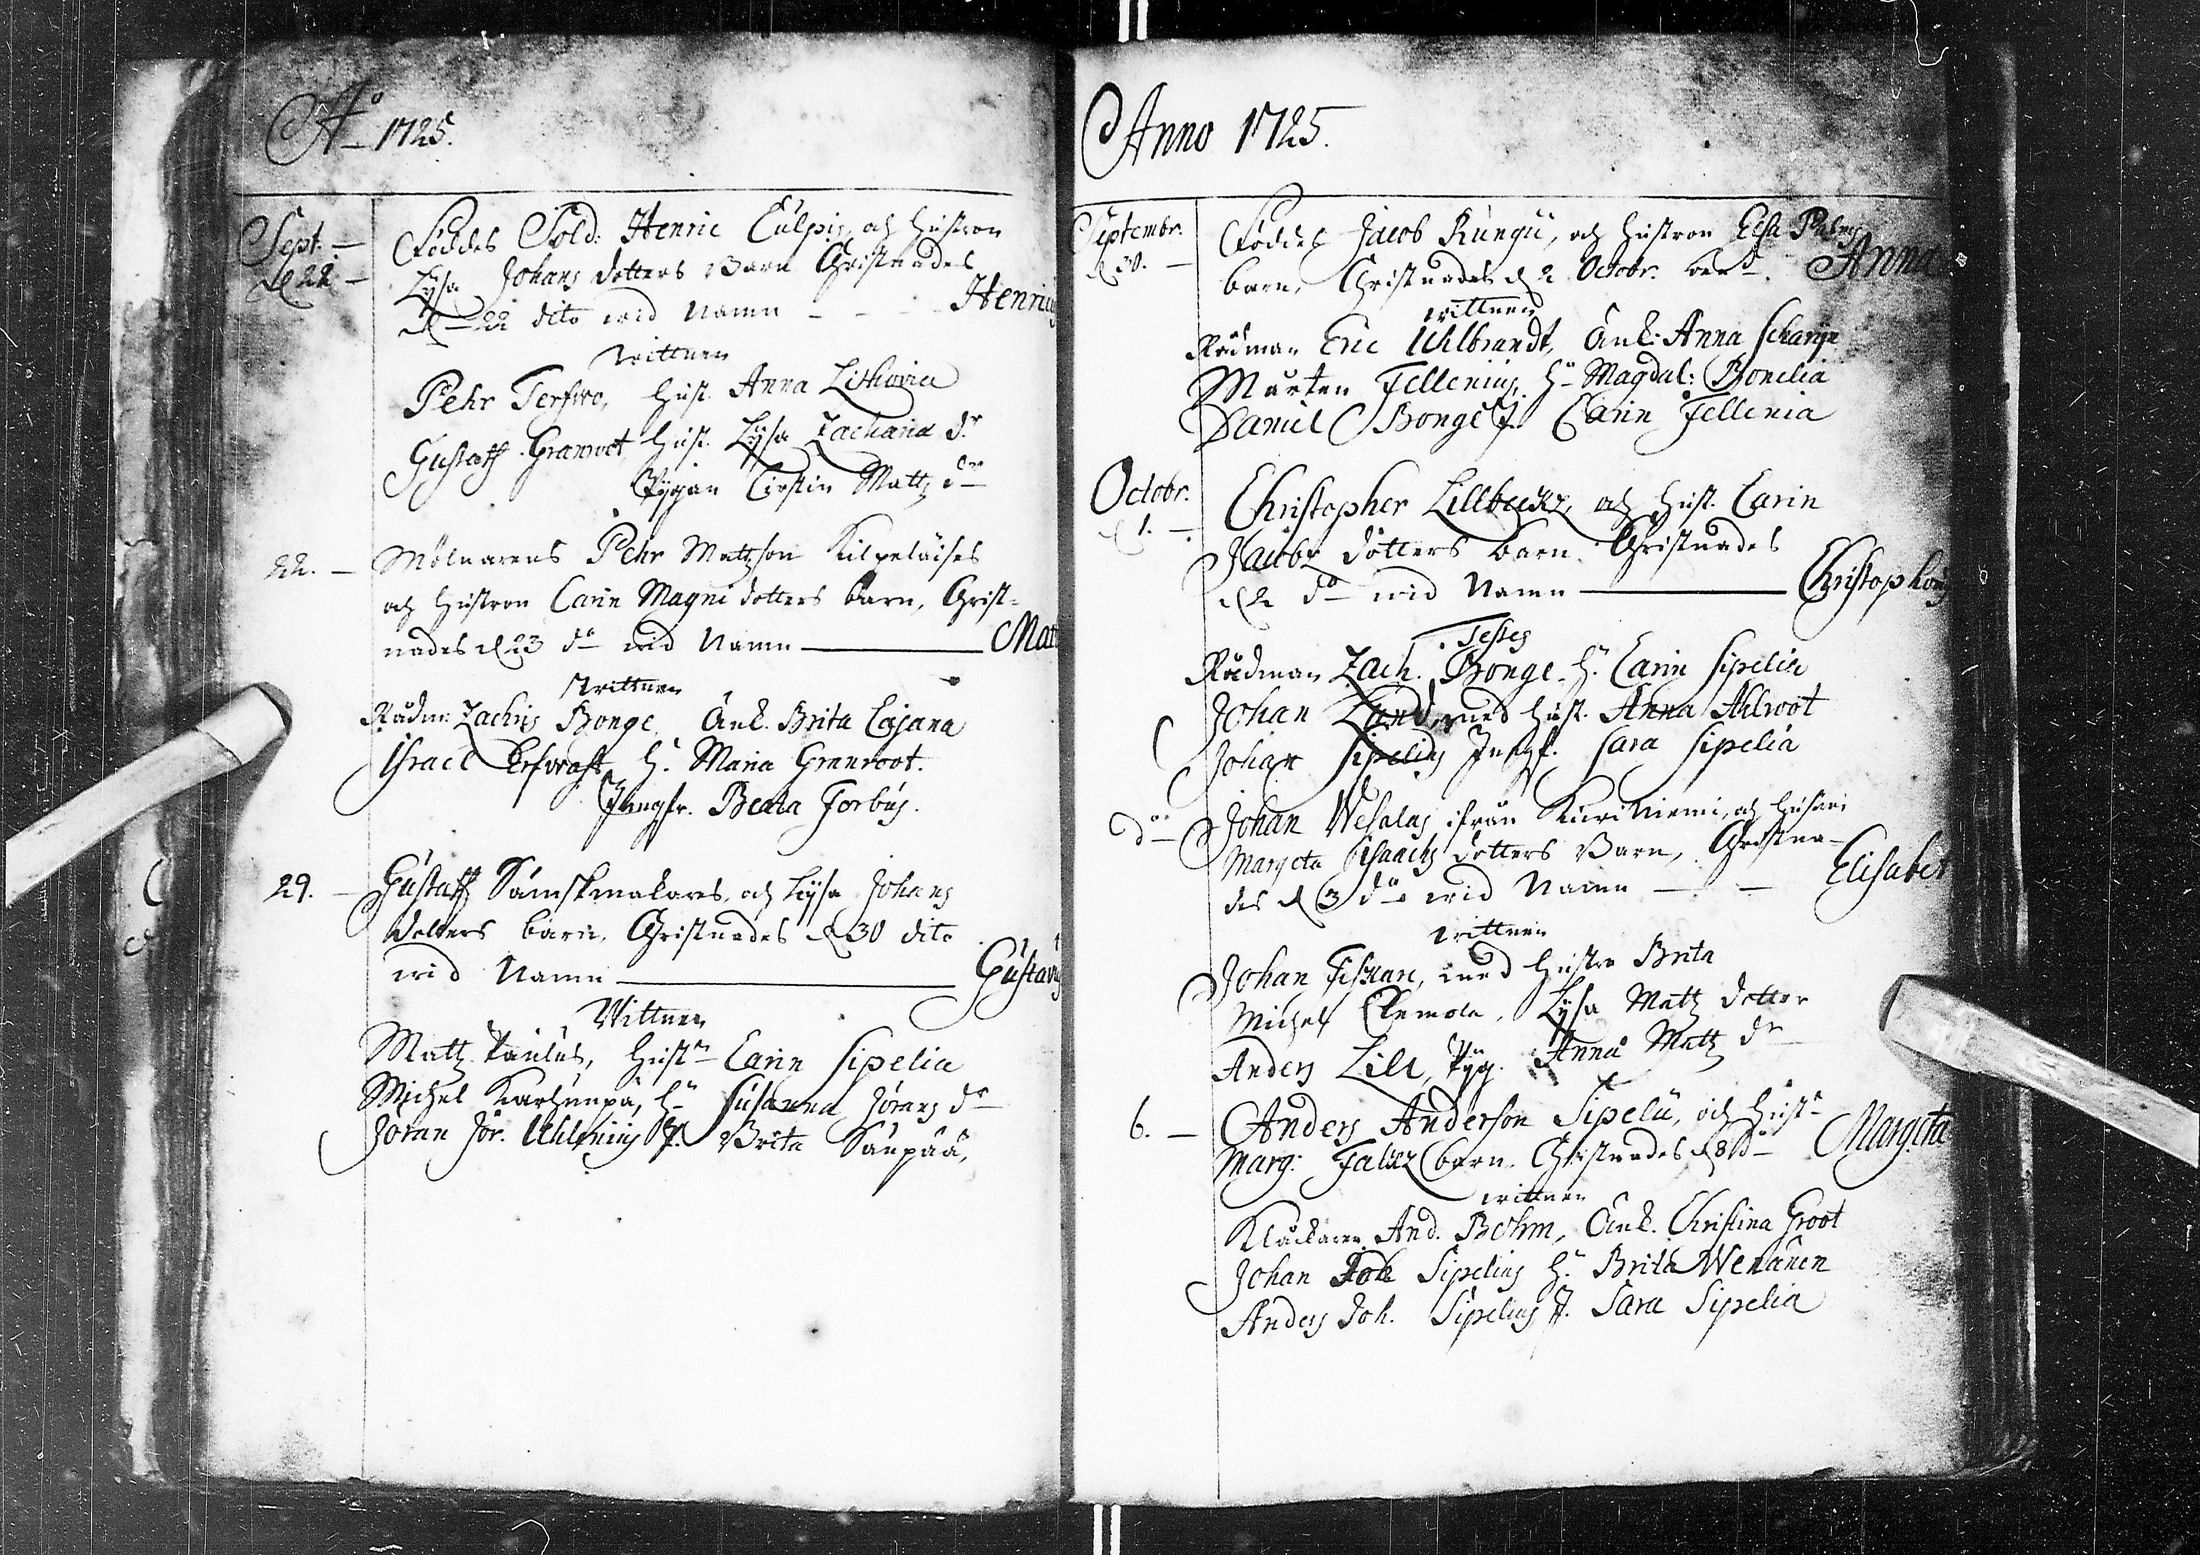 Aº 1725.
Sept. — Föddes Sold: Henric Culpis, och hustron
d 22 — Lysa Johans dotters Barn Christnades
d 22 dito wid Namn - - - Henricus
Wittnen
Pehr Terfwo, Hust. Anna Lithovia
Gustaff Granroot Hust. Lysa Zacharia dr
Pygan Cirstin Mattz dr
22. — Mölnarens Pehr Mattzson Kilpeläises
och hustron Carin Magni dotters barn, Christ-
nades d 23 do wid Namn — Mat
Wittnen
Rådm: Zachris Bonge Änk. Brita Cajana
Israel H. Maria Granroot.
Jungfr. Beata Forbus.
29. — Gustaff Sämskmakares, och Lysa Johans
dotters barn, Christnades d 30 dito
wid Namn — Gustavus
Wittnen
Mattz Paulus, Hustr Carin Sipelia
Michel Karhunpä, H Susanna Jörans dr
Joran Jör. Uhlenius J. Brita Saupää,
Anno 1725.
Septembr. Föddes Jacob Rungii, och hustron Elsa
d 30. — barn, Christnades d 2 Octobr. Anna
wittnen
Rådman Eric Uhlbrandt, Änk: Anna
Mårten Fellenius, H Magdal: Bonelia
Daniel Bonge J. Carin Fellenia
Octobr. Christopher Lillbeckz, och Hust. Carin
d 1. — Jacobz dotters barn Christnades
d 2 do wid Namn — Christophorus
Testes
Rådman Zach. Bonge. H. Carin Sipelia
Johan hust. Anna Ahlroot
Johan Sipelius Jungf. Sara Sipelia
do — Johan Wesalus ifrån Kuriniemi, och hustru
Margeta Isaachs dotters Barn, Christna-
des d 3 do wid Namn — — Elisabet
wittnen
Johan Fiskare, med hustru Brita
Michel Clemola, Lysa Mattz dotter
Anders Lill, Pyg. Anna Mattz dr
6. — Anders Anderson Sipelii, och Hustr
Marg: Falckz barn. Christnades d 8 do Margeta
wittnen
Klåckaren And. Bohm, Änk. Christina Groot
Johan Joh Sipelius H. Brita Wenanen
Anders Joh. Sipelius J. Sara Sipelia